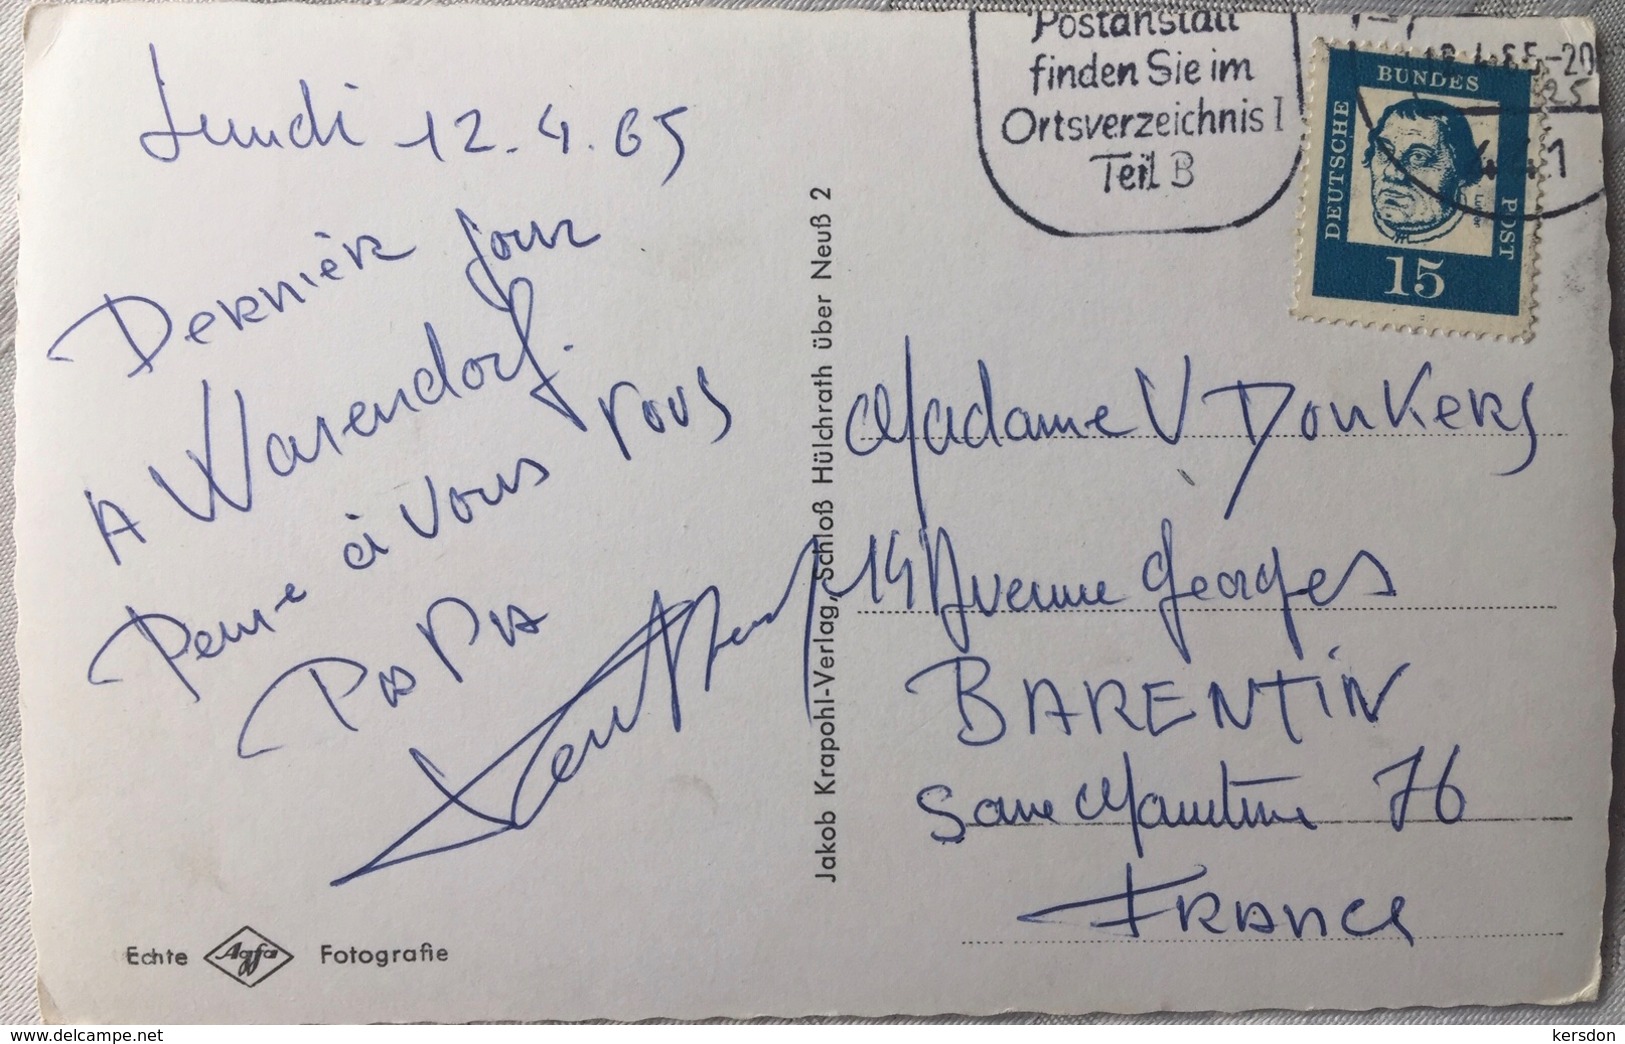 Postanstalt
finden Sie im
Ortsverzeichnis I
Teil B
-4.65-20
25
441
DEUTSCHE BUNDES POST
15
Lundi 12.4.65
Dernière jour
A Warendorf.
Pense à vous tous
PAPA
Jakob Krapohl-Verlag, Schloß Hülchrath über Neuß 2
Madame V Donkers
14 Avenue Georges
BARENTIN
Seine Maritime 76
FRANCE
Echte Agfa Fotografie
kersdon